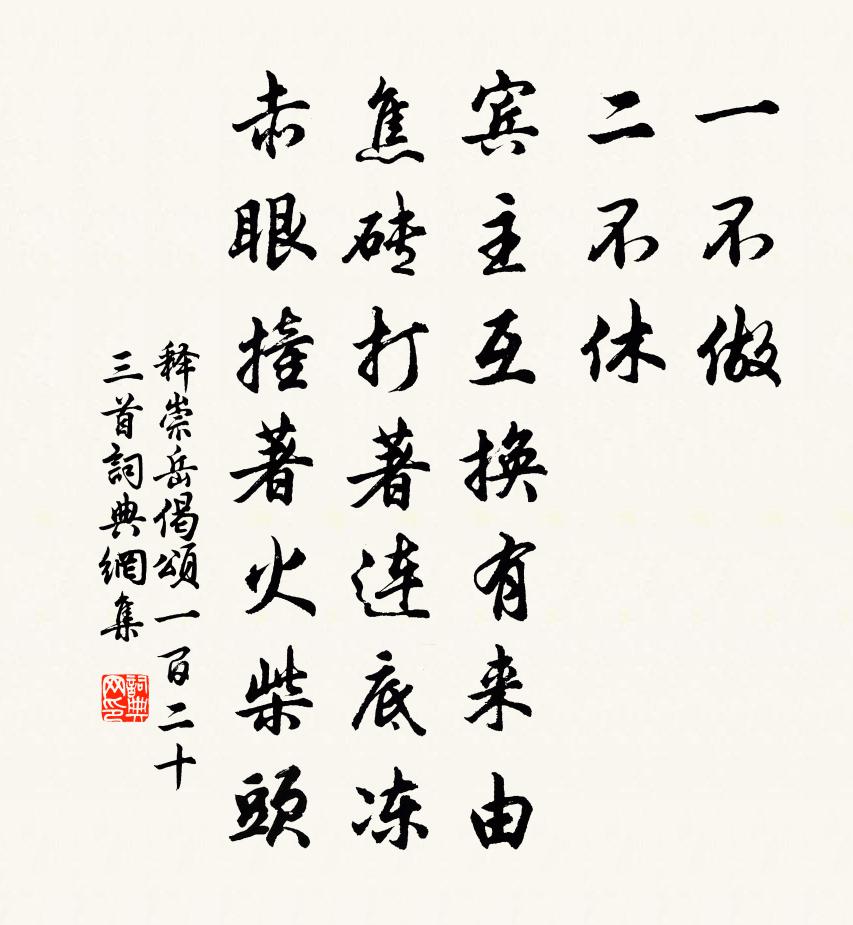 一不做
二不休
宾主互换有来由
焦砖打著连底冻
赤眼撞著火柴頭
释崇岳偈頌一百二十
三首詞典網集
詞典
网印